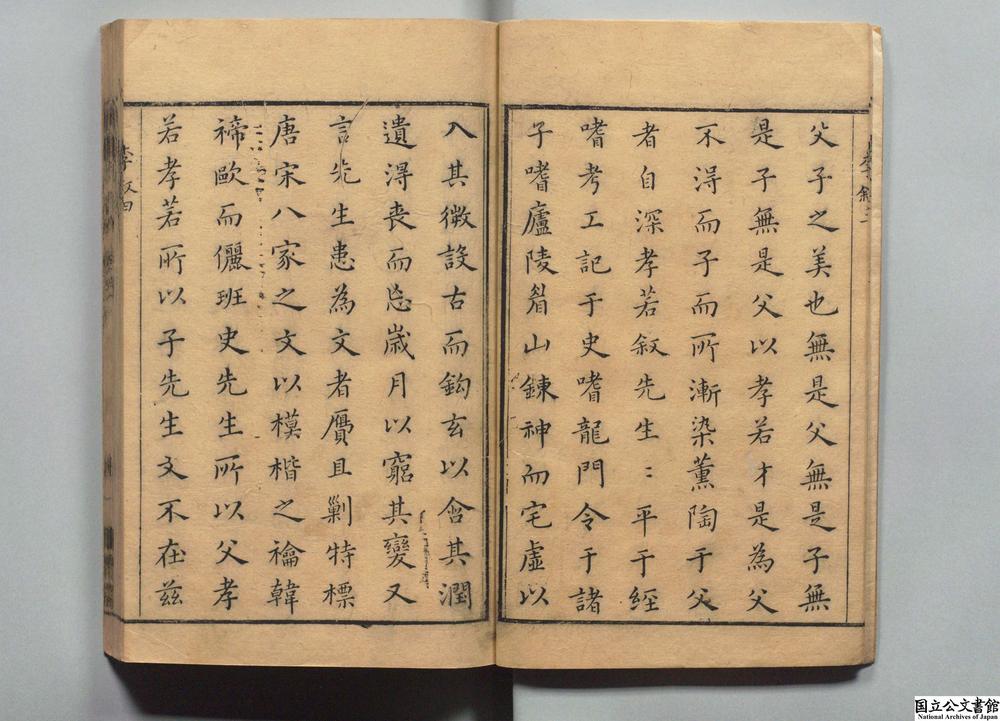 父子之美也無是父無是子無
是子無是父以孝若才是為父
不得而子而所漸染薰陶于父
者自深孝若叙先生〻平于經
嗜考工記于史嗜龍門令于諸
子嗜廬陵眉山錬神而宅虛以
入其微設古而鈎玄以含其潤
遺得喪而忘歲月以窮其變又
言先生患為文者贋且剿特標
唐宋八家之文以模楷之禴韓
禘歐而儷班史先生所以父孝
若孝若所以子先生文不在茲
李叙四
国立公文書館
National Archives of Japan